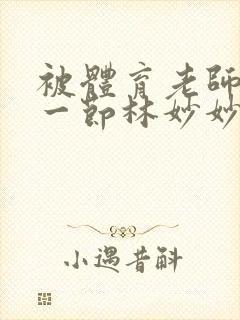 被體育老師
一節林妙妙
小遇昔斛